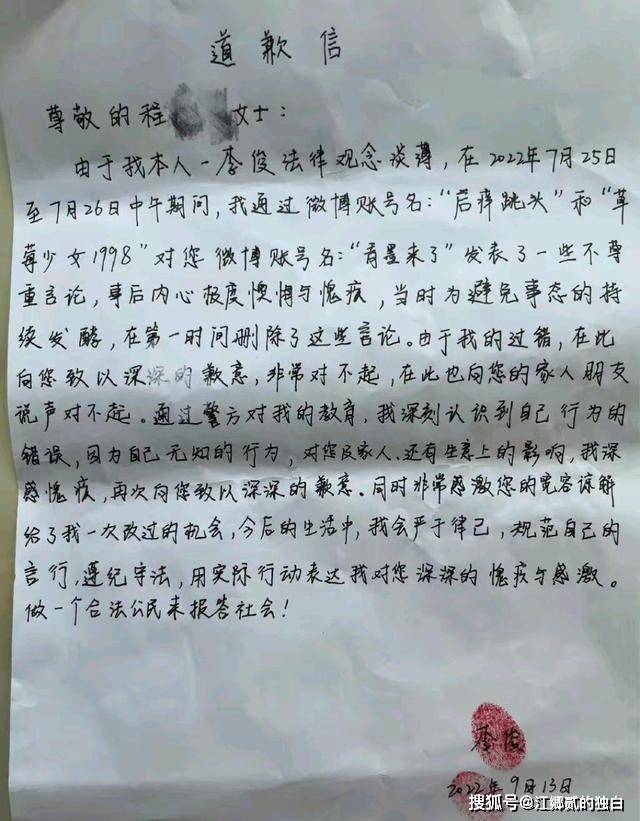 道歉信
尊敬的程 女士：
由于我本人-李俊法律观念淡薄，在2022年7月25日
至7月26日中午期间，我通过微博账号名："后摔跳头"和"草
莓少女1998"对您微博账号名："青墨来了"发表了一些不尊
重言论，事后内心极度懊悔与愧疚，当时为避免事态的持
续发酵，在第一时间删除了这些言论。由于我的过错，在此
向您致以深深的歉意，非常对不起，在此也向您的家人朋友
说声对不起。通过警方对我的教育，我深刻认识到自己行为的
错误，因为自己无知的行为，对您及家人、还有生意上的影响，我深
感愧疚，再次向您致以深深的歉意。同时非常感激您的宽容谅解
给了我一次改过的机会，今后的生活中，我会严于律己，规范自己的
言行，遵纪守法，用实际行动表达我对您深深的愧疚与感激。
做一个合法公民来报答社会！
李俊
2022年9月13日
搜狐号@江郷贰的独白